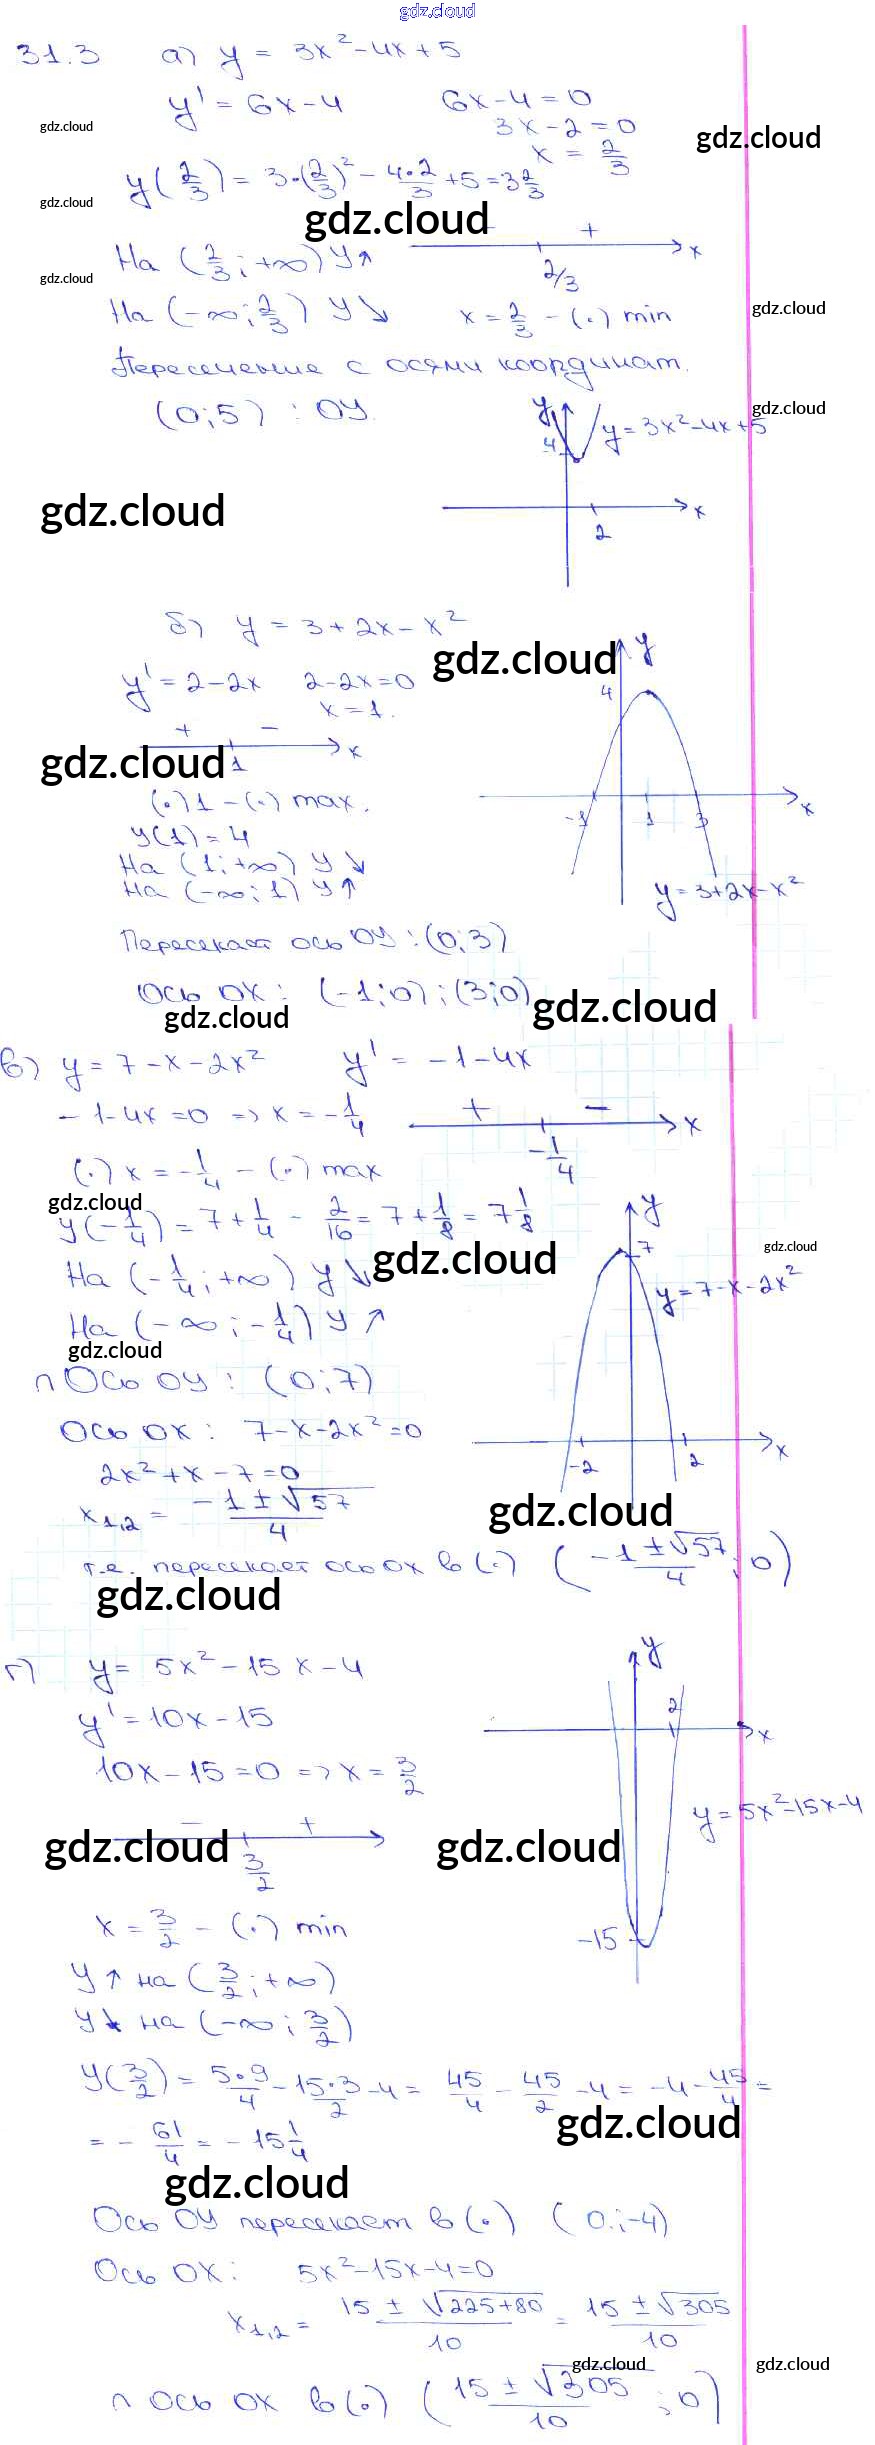 gdz.cloud
31.3 а) y = 3x² - 4x + 5
y' = 6x - 4 6x - 4 = 0
gdz.cloud 3x - 2 = 0 gdz.cloud
x = 2/3
y(2/3) = 3·(2/3)² - 4·2/3 + 5 = 3 2/3
gdz.cloud gdz.cloud
- + x
На (2/3; +∞) y↑ 2/3
gdz.cloud
На (-∞; 2/3) y↘ x = 2/3 - (.) min gdz.cloud
Пересечение с осями координат.
(0; 5) : OY. y gdz.cloud
4 y = 3x² - 4x + 5
gdz.cloud x
2
б) y = 3 + 2x - x²
gdz.cloud y
y' = 2 - 2x 2 - 2x = 0 4
x = 1.
+ - x
gdz.cloud 1
(.) 1 - (.) max. x
-1 1 3
y(1) = 4
На (1; +∞) y↘
На (-∞; 1) y↑ y = 3 + 2x - x²
Пересекает ось OY : (0; 3)
Ось OX : (-1; 0) ; (3; 0)
gdz.cloud gdz.cloud
в) y = 7 - x - 2x² y' = -1 - 4x
-1 - 4x = 0 => x = -1/4 + - x
-1/4
(.) x = -1/4 - (.) max
gdz.cloud y
y(-1/4) = 7 + 1/4 - 2/16 = 7 + 1/8 = 7 1/8
7 gdz.cloud
gdz.cloud
На (-1/4; +∞) y↘ y = 7 - x - 2x²
На (-∞; -1/4) y↗
gdz.cloud
∩ Ось OY : (0; 7)
Ось OX : 7 - x - 2x² = 0 x
-2 2
2x² + x - 7 = 0
x1,2 = -1 ± √57/4 gdz.cloud
т.е. пересекает ось OX в (.) (-1 ± √57/4; 0)
gdz.cloud
г) y = 5x² - 15x - 4 y
y' = 10x - 15 2
x
10x - 15 = 0 => x = 3/2
y = 5x² - 15x - 4
- +
gdz.cloud gdz.cloud
3/2
x = 3/2 - (.) min -15
y↑ на (3/2; +∞)
y↘ на (-∞; 3/2)
y(3/2) = 5·9/4 - 15·3/2 - 4 = 45/4 - 45/2 - 4 = -4 - 45/4 =
gdz.cloud
= -61/4 = -15 1/4
gdz.cloud
Ось OY пересекает в (.) (0; -4)
Ось OX : 5x² - 15x - 4 = 0
x1,2 = 15 ± √225+80/10 = 15 ± √305/10
gdz.cloud gdz.cloud
∩ Ось OX в (.) (15 ± √305/10; 0)